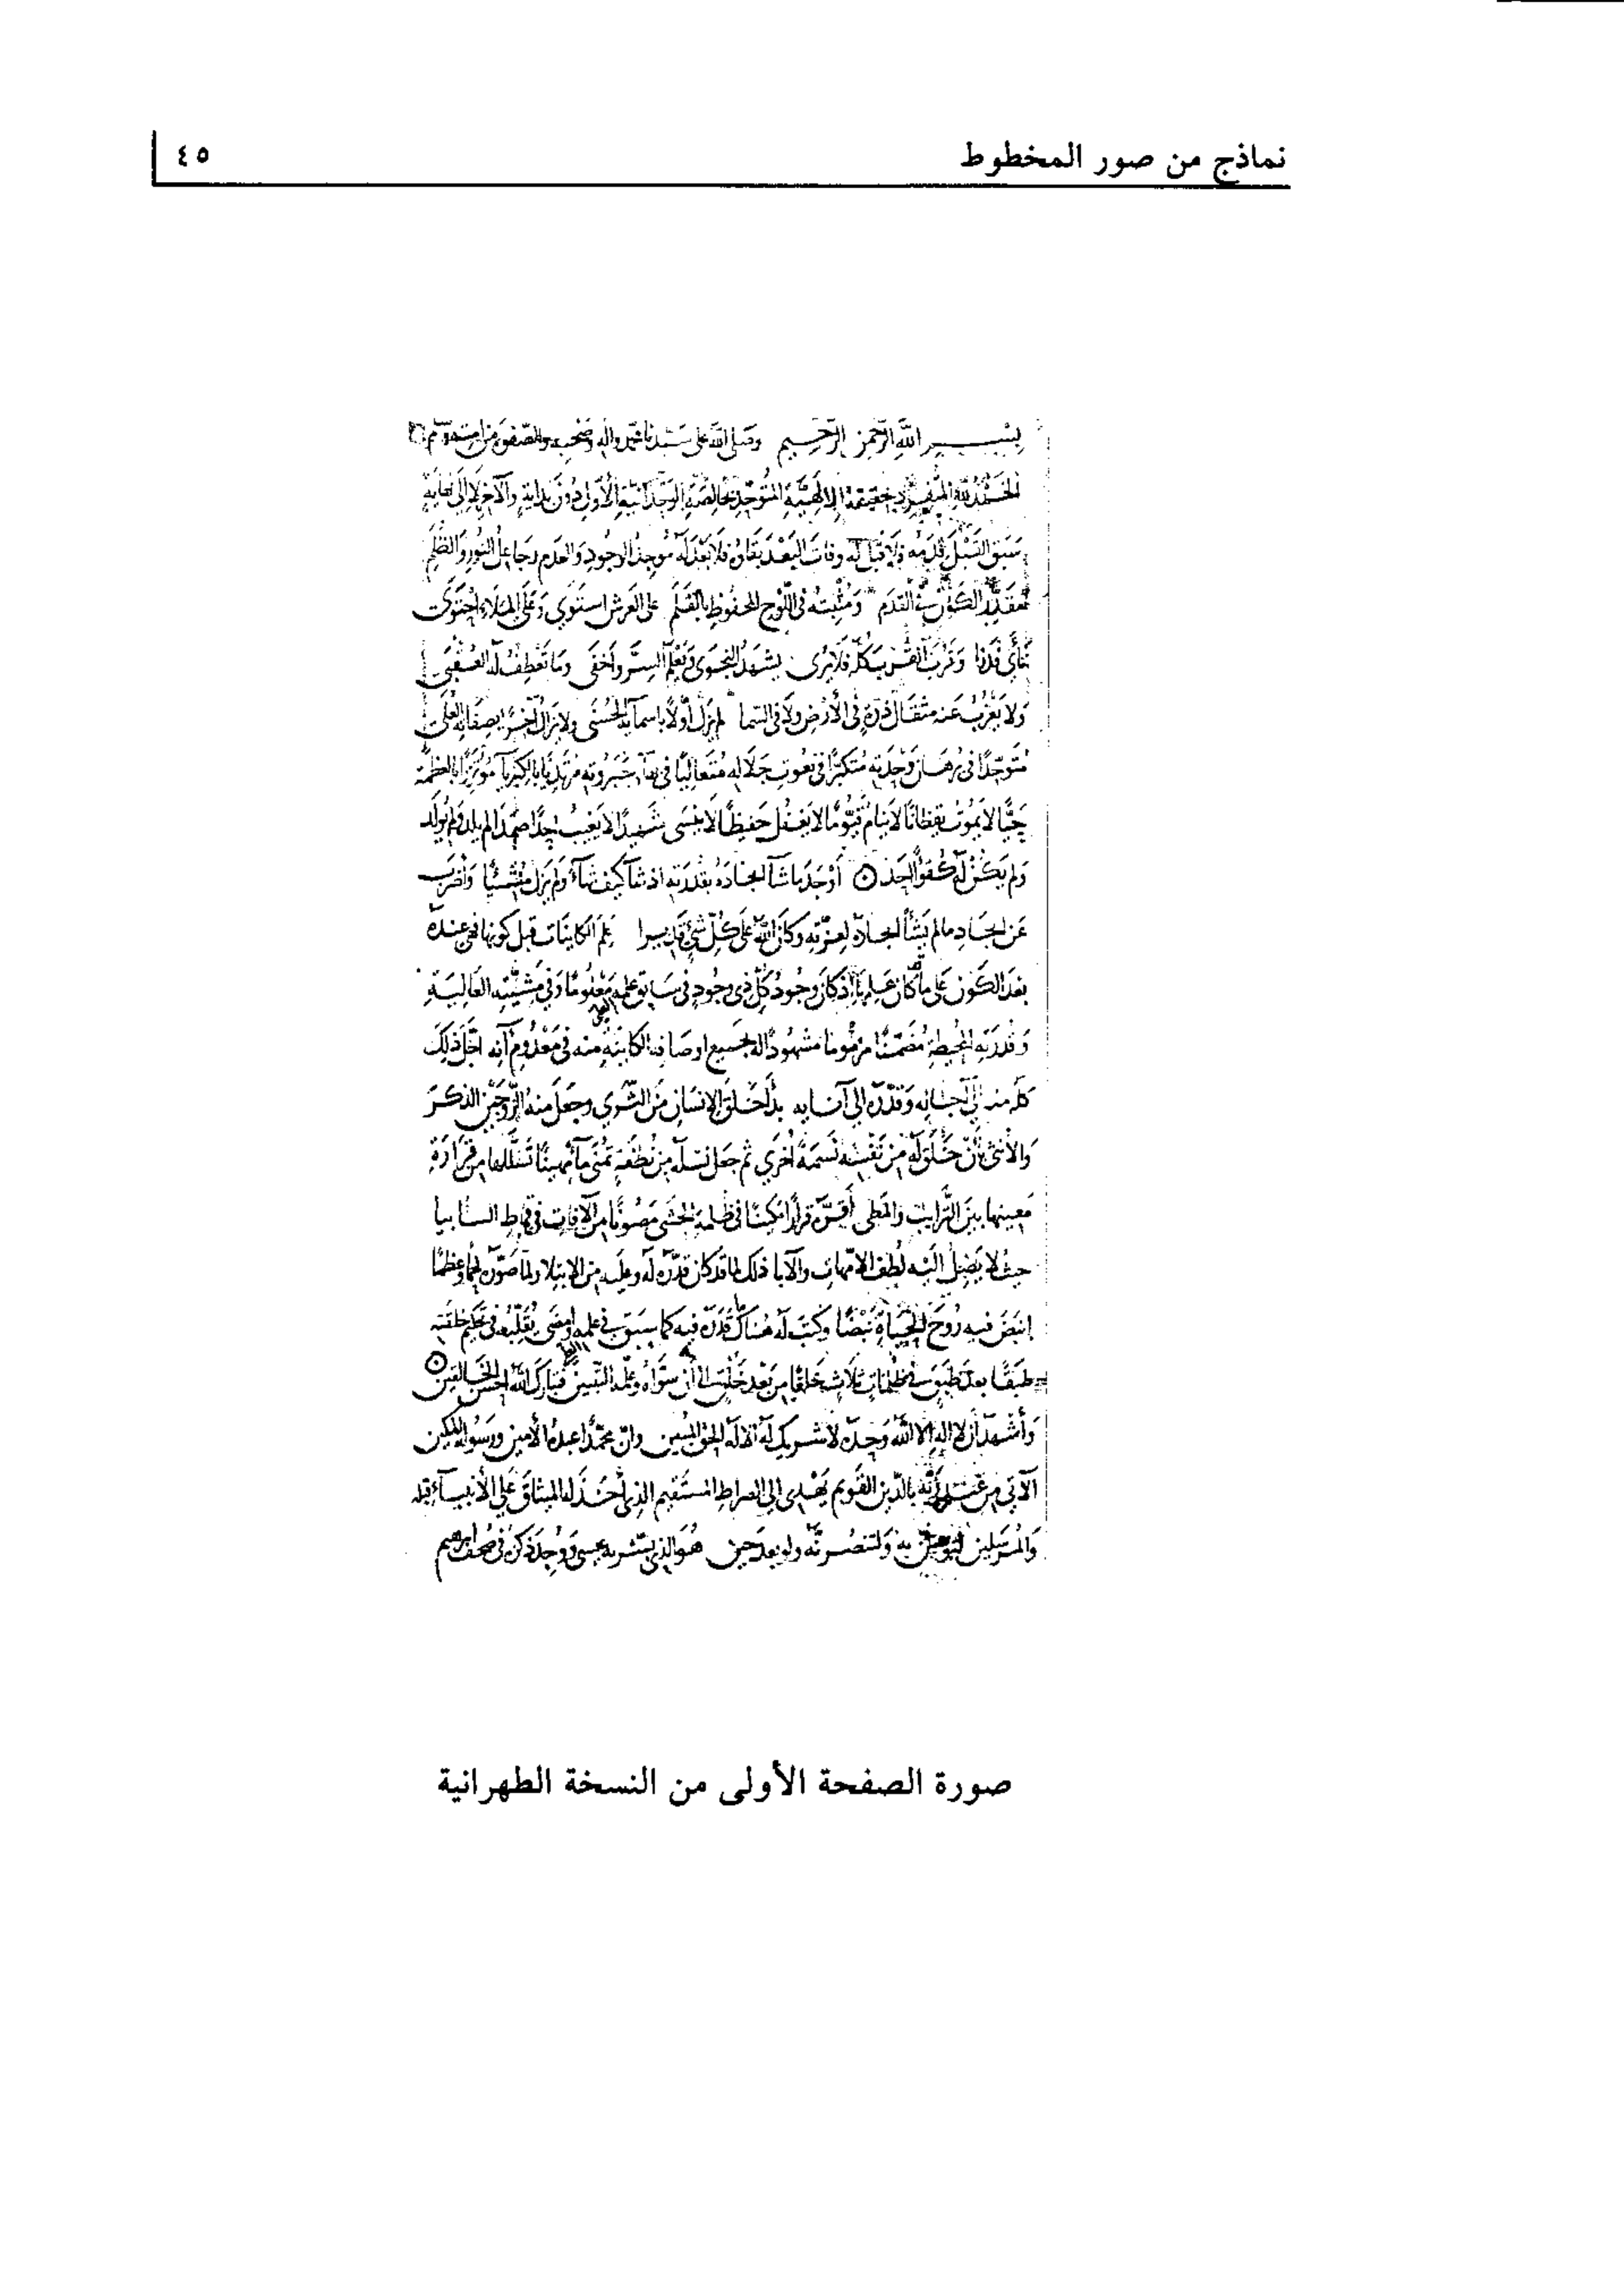 نماذج من صور المخطوط
٤٥
بسم الله الرحمن الرحيم وصلى الله على سيدنا محمد واله وصحبه
الحمد لله المتفرد بحقيقة الإلهية المتوحد بخالصة الوحدانية الأول دون بداية والآخر لا إلى نهاية
سبق القبل قدمه فلا قبل له وفات البعد بقاؤه فلا بعد له موجد الوجود والعدم وجاعل النور والظلم
القدم ومثبته في اللوح المحفوظ بالقلم على العرش استوى وعلى الملاء احتوى
نأى فدنا وقرب فلا يرى يشهد النجوى ويعلم السر وأخفى وما
ولا يعزب عنه مثقال ذرة في الأرض ولا في السما لم يزل أولا باسمائه الحسنى ولا يزال آخرا بصفاته العلى
متوحدا في برهان وحدته متكبرا في نعوت جلاله متعاليا في مرتديا بالكبرياء مؤتزرا بالعظمة
حيا لا يموت يقظانا لا ينام قيوما لا يغفل حفيظا لا ينسى شهيدا لا يغيب احدا صمدا لم يلد ولم يولد
ولم يكن له كفوا أحد أوجد ما شآ ايجاده بقدرته اذ شآ كيف شآء ولم يزل واضرب
عن ايجاد مالم يشأ ايجاده لعزته وكان الله على كل شيء قديرا علم الكاينات قبل كونها فهي عنده
بعد الكون على ما كان عليه إذ كان وجود كل ذي وجود في سابق علمه معلوما وفي مشيته العالية
وقدرته المحيطة مشهودا له بجميع اوصافه الكاينة منه في معدوم آنه اجل ذلك
كله منه إلى وقدره إلى بدأ خلق الإنسان من الثرى وجعل منه الزوجين الذكر
والأنثى بأن خلق له من نفسه نسمة أخرى ثم جعل نسله من نطفة تمنى مآء مهينا من قرارة
معينها بين الترايب والمطى أقره قرارا مكينا في ظلمة الحشى مصونا من الآفات في
حيث لا يصل اليه لطف الامهات والآبا ذلك لما قد كان قدره له وعليه من الابتلا ولما صوره لحما وعظما
انبض فيه روح الحياة نبضا وكتب له هناك ما قدره فيه كما سبق في علمه
طبقا بعد طبق في ظلمات ثلاث خلقا من بعد خلق إلى أن سواه فتبارك الله أحسن الخالقين
وأشهد أن لا إله إلا الله وحده لا شريك له الاله الحق المبين وان محمدا عبده الأمين ورسوله المكين
الآتي من بالدين القويم يهدى إلى الصراط المستقيم الذي أخذ له الميثاق على الأنبيآء قبله
والمرسلين ليؤمنن به ولتنصرنه ولو بعد حين هو الذي بشر به عيسى ووجد ذكره في صحف ابرهيم
صورة الصفحة الأولى من النسخة الطهرانية